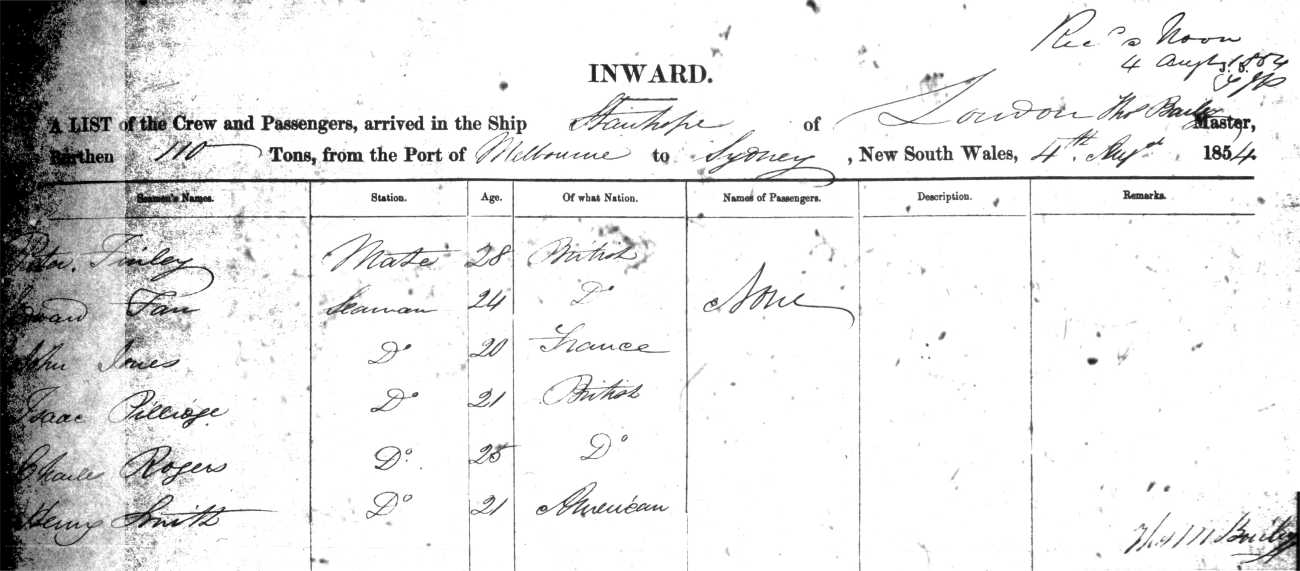 Rec'd Noon
4 Augt 1854
INWARD.
A LIST of the Crew and Passengers, arrived in the Ship Stanhope of London Thos Bailey Master,
Burthen 110 Tons, from the Port of Melbourne to Sydney, New South Wales, 4th Augst 1854
Seamen's Names. Station. Age. Of what Nation. Names of Passengers. Description. Remarks.
Peter Finley Mate 28 British
Edward Farr Seaman 24 Do None
John Jones Do 20 France
Isaac Do 21 British
Charles Rogers Do 25 Do
Henry Smith Do 21 American
Thos M Bailey